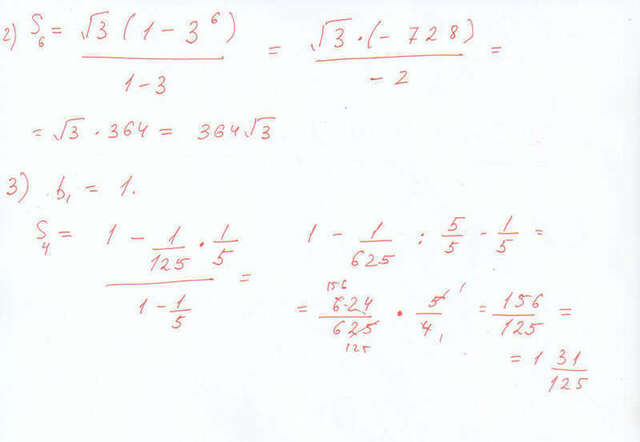 2) S₆ = √3 (1 - 3⁶) / (1 - 3) = √3 · (- 728) / - 2 =
= √3 · 364 = 364√3
3) b₁ = 1.
S₄ = (1 - 1/125 · 1/5) / (1 - 1/5) = 1 - 1/625 : 5/5 - 1/5 =
= 624/625 · 5/4 = 156/125 =
156 125 1 1
= 1 31/125